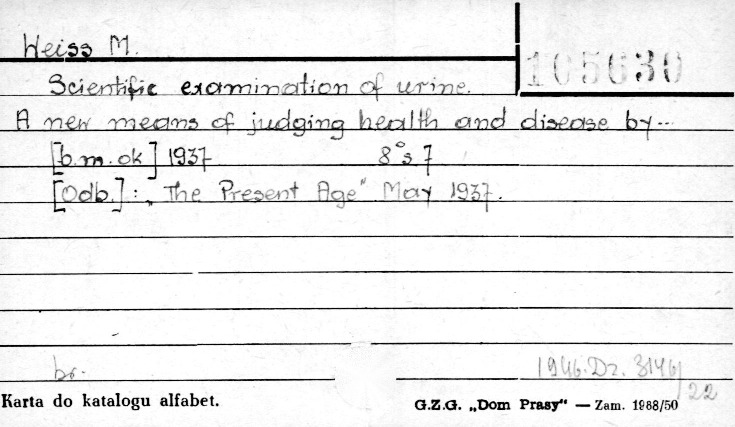 Weiss M.
105630
Scientific examination of urine.
A new means of judging health and disease by...
[b.m.ok] 1937 8° s. 7
[Odb.]: „The Present Age" May 1937.
br. 1946.Dz.3146/22
Karta do katalogu alfabet.
G.Z.G. „Dom Prasy" — Zam. 1988/50